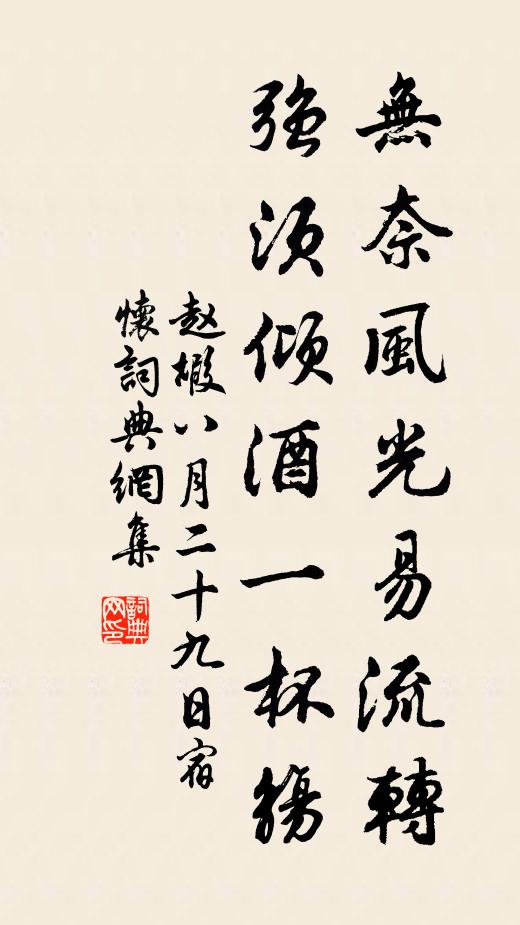 無奈風光易流轉
強須傾酒一杯觴
赵嘏八月二十九日宿
懷詞典網集
詞典
网印